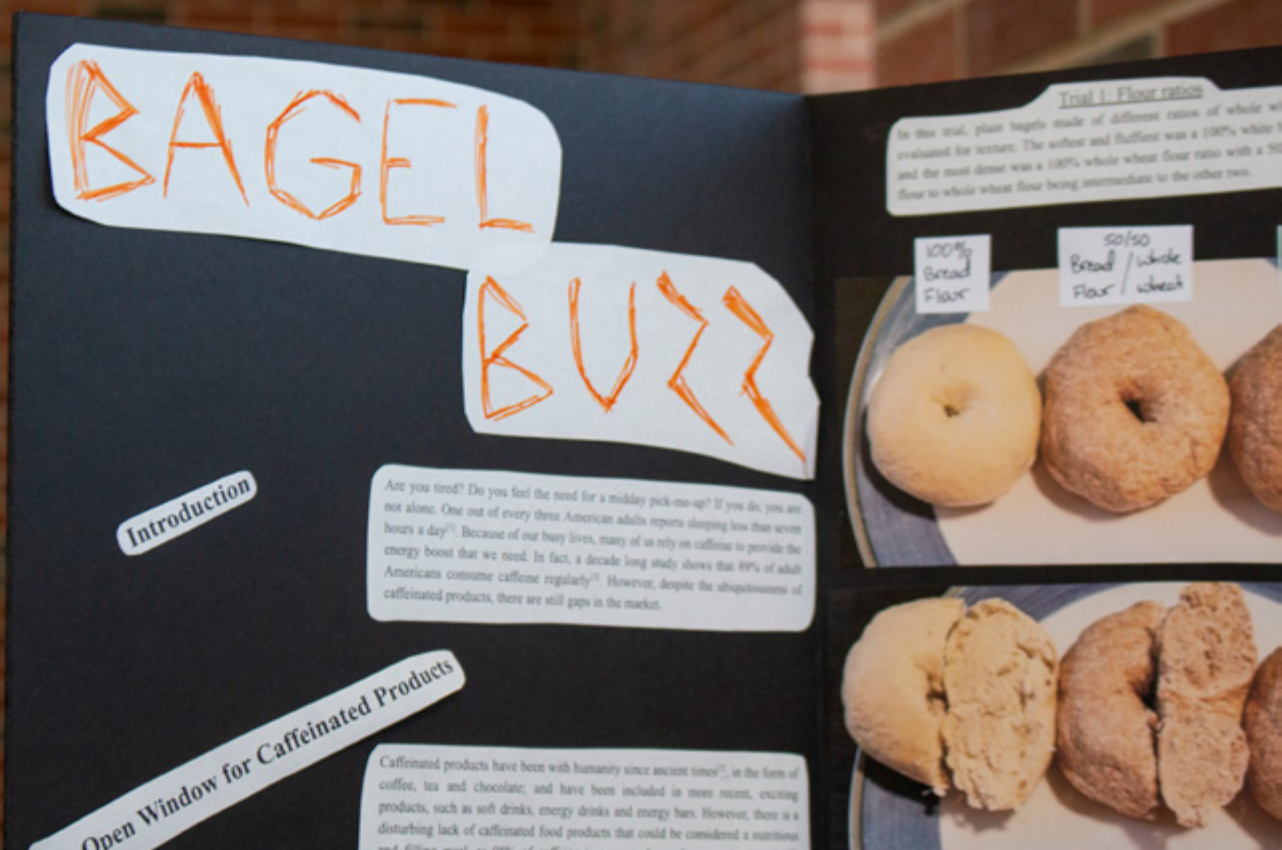 BAGEL
BUZZ
Introduction
Are you tired? Do you feel the need for a midday pick-me-up? If you do, you are
not alone. One out of every three American adults reports sleeping less than seven
hours a day[1]. Because of our busy lives, many of us rely on caffeine to provide the
energy boost that we need. In fact, a decade long study shows that 89% of adult
Americans consume caffeine regularly[2]. However, despite the ubiquitousness of
caffeinated products, there are still gaps in the market.
Open Window for Caffeinated Products
Caffeinated products have been with humanity since ancient times[2], in the form of
coffee, tea and chocolate; and have been included in more recent, exciting
products, such as soft drinks, energy drinks and energy bars. However, there is a
disturbing lack of caffeinated food products that could be considered a nutritious
Trial 1: Flour ratios
In this trial, plain bagels made of different ratios of whole
evaluated for texture. The softest and fluffiest was a 100% white
and the most dense was a 100% whole wheat flour ratio with a
flour to whole wheat flour being intermediate to the other two.
100%
Bread
Flour
50/50
Bread / whole
Flour / wheat